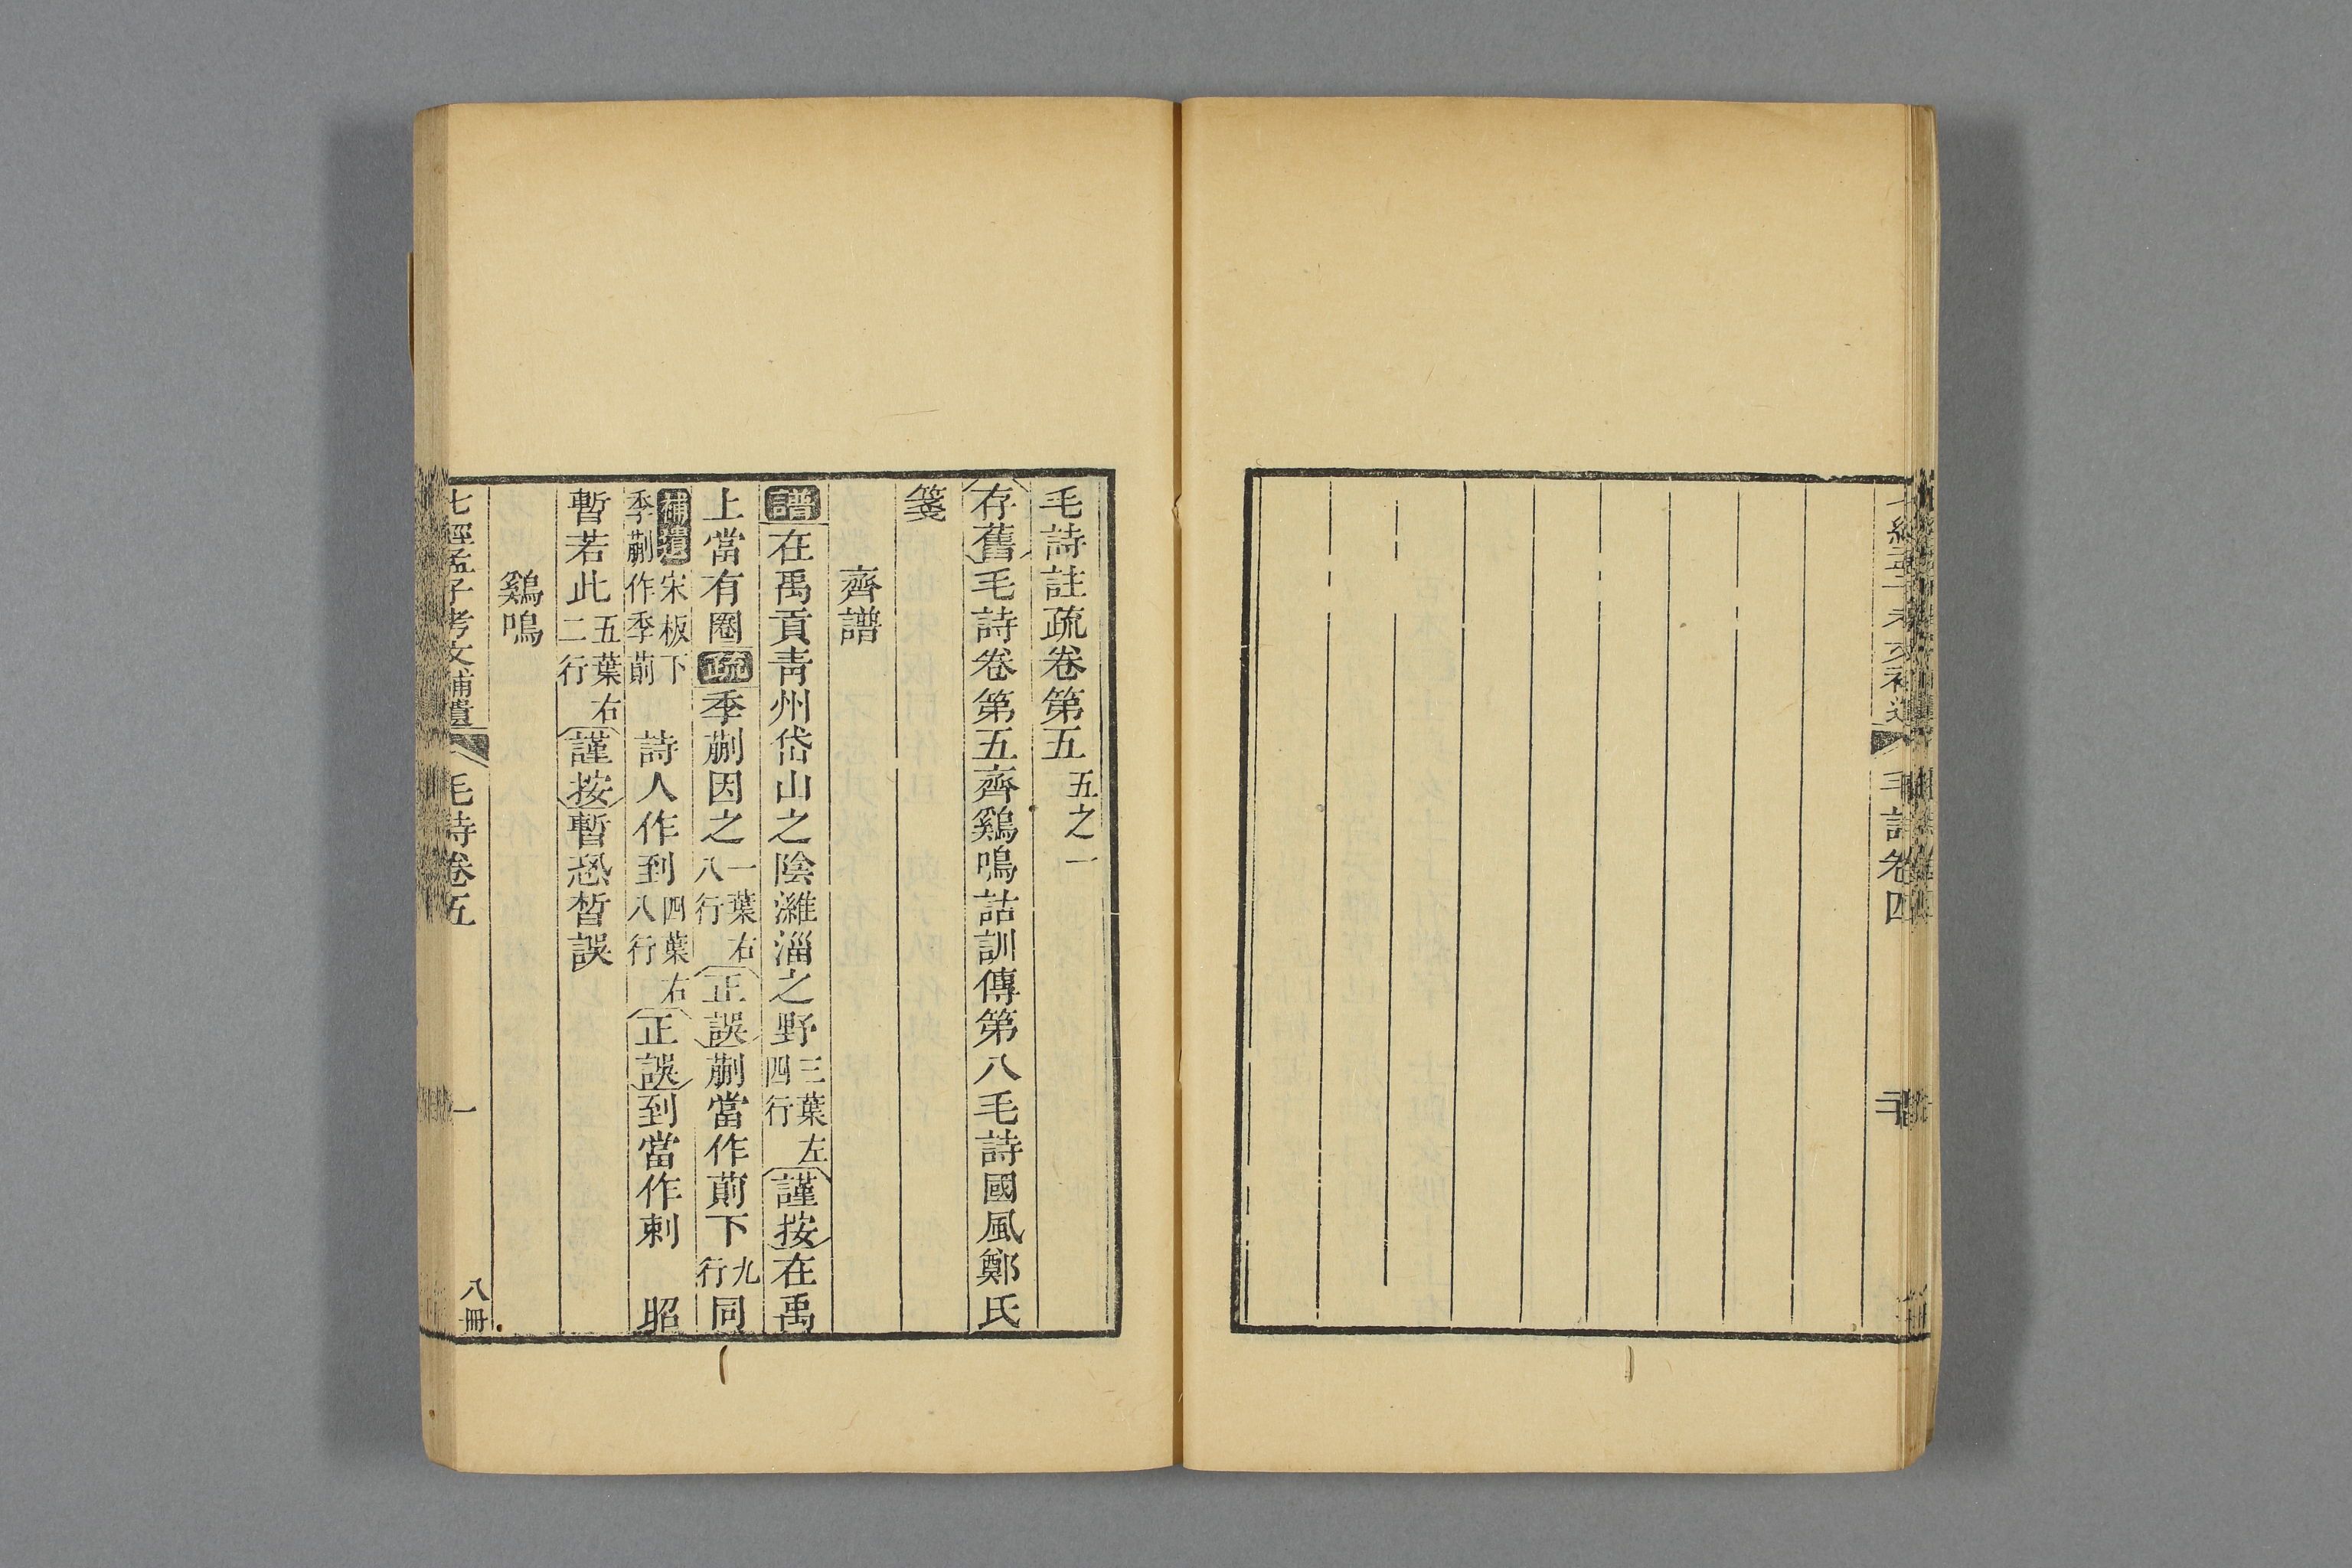 毛詩卷四
毛詩註疏卷第五 五之一
存舊毛詩卷第五齊鷄鳴詁訓傳第八毛詩國風鄭氏
箋
齊譜
譜在禹貢靑州岱山之陰濰淄之野三葉左四行謹按在禹
上當有圈疏季蒯因之一葉右八行正誤蒯當作萴下九行同
補遺宋板下季蒯作季萴 詩人作到四葉右八行正誤到當作刺 昭
暫若此五葉右二行謹按暫恐晳誤
鷄鳴
七經孟子考文補遺 毛詩卷五 一 八冊